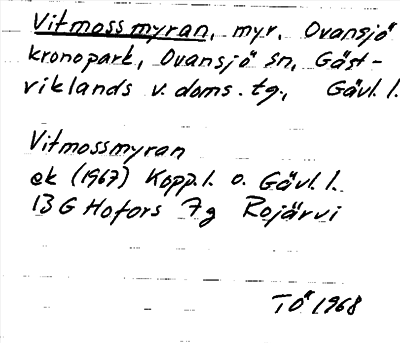 Vitmossmyran, myr, Ovansjö
kronopark, Ovansjö sn, Gäst-
riklands v. doms. tg., Gävl. l.
Vitmossmyran
ek (1967) Kopp. l. o. Gävl. l.
13 G Hofors 7g Rojärvi
TÖ 1968